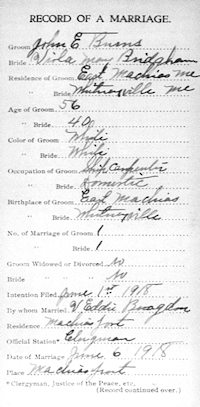 RECORD OF A MARRIAGE.
Groom John E Burns
Bride Viola May Bridgham
Residence of Groom East Machias Me
" Bride Whitneyville Me
Age of Groom 56
" Bride 40
Color of Groom White
" Bride White
Occupation of Groom Ship Carpenter
" Bride Domestic
Birthplace of Groom East Machias
" Bride Whitneyville
No. of Marriage, Groom 1
" Bride 1
Groom Widowed or Divorced No
Bride " " No
Intention Filed June 1st 1918
By whom Married Eddie Bragdon
Residence Machiasport
Official Station* Clergyman
Date of Marriage June 6 1918
Place Machiasport
* Clergyman, Justice of the Peace, etc.
(Record continued over.)